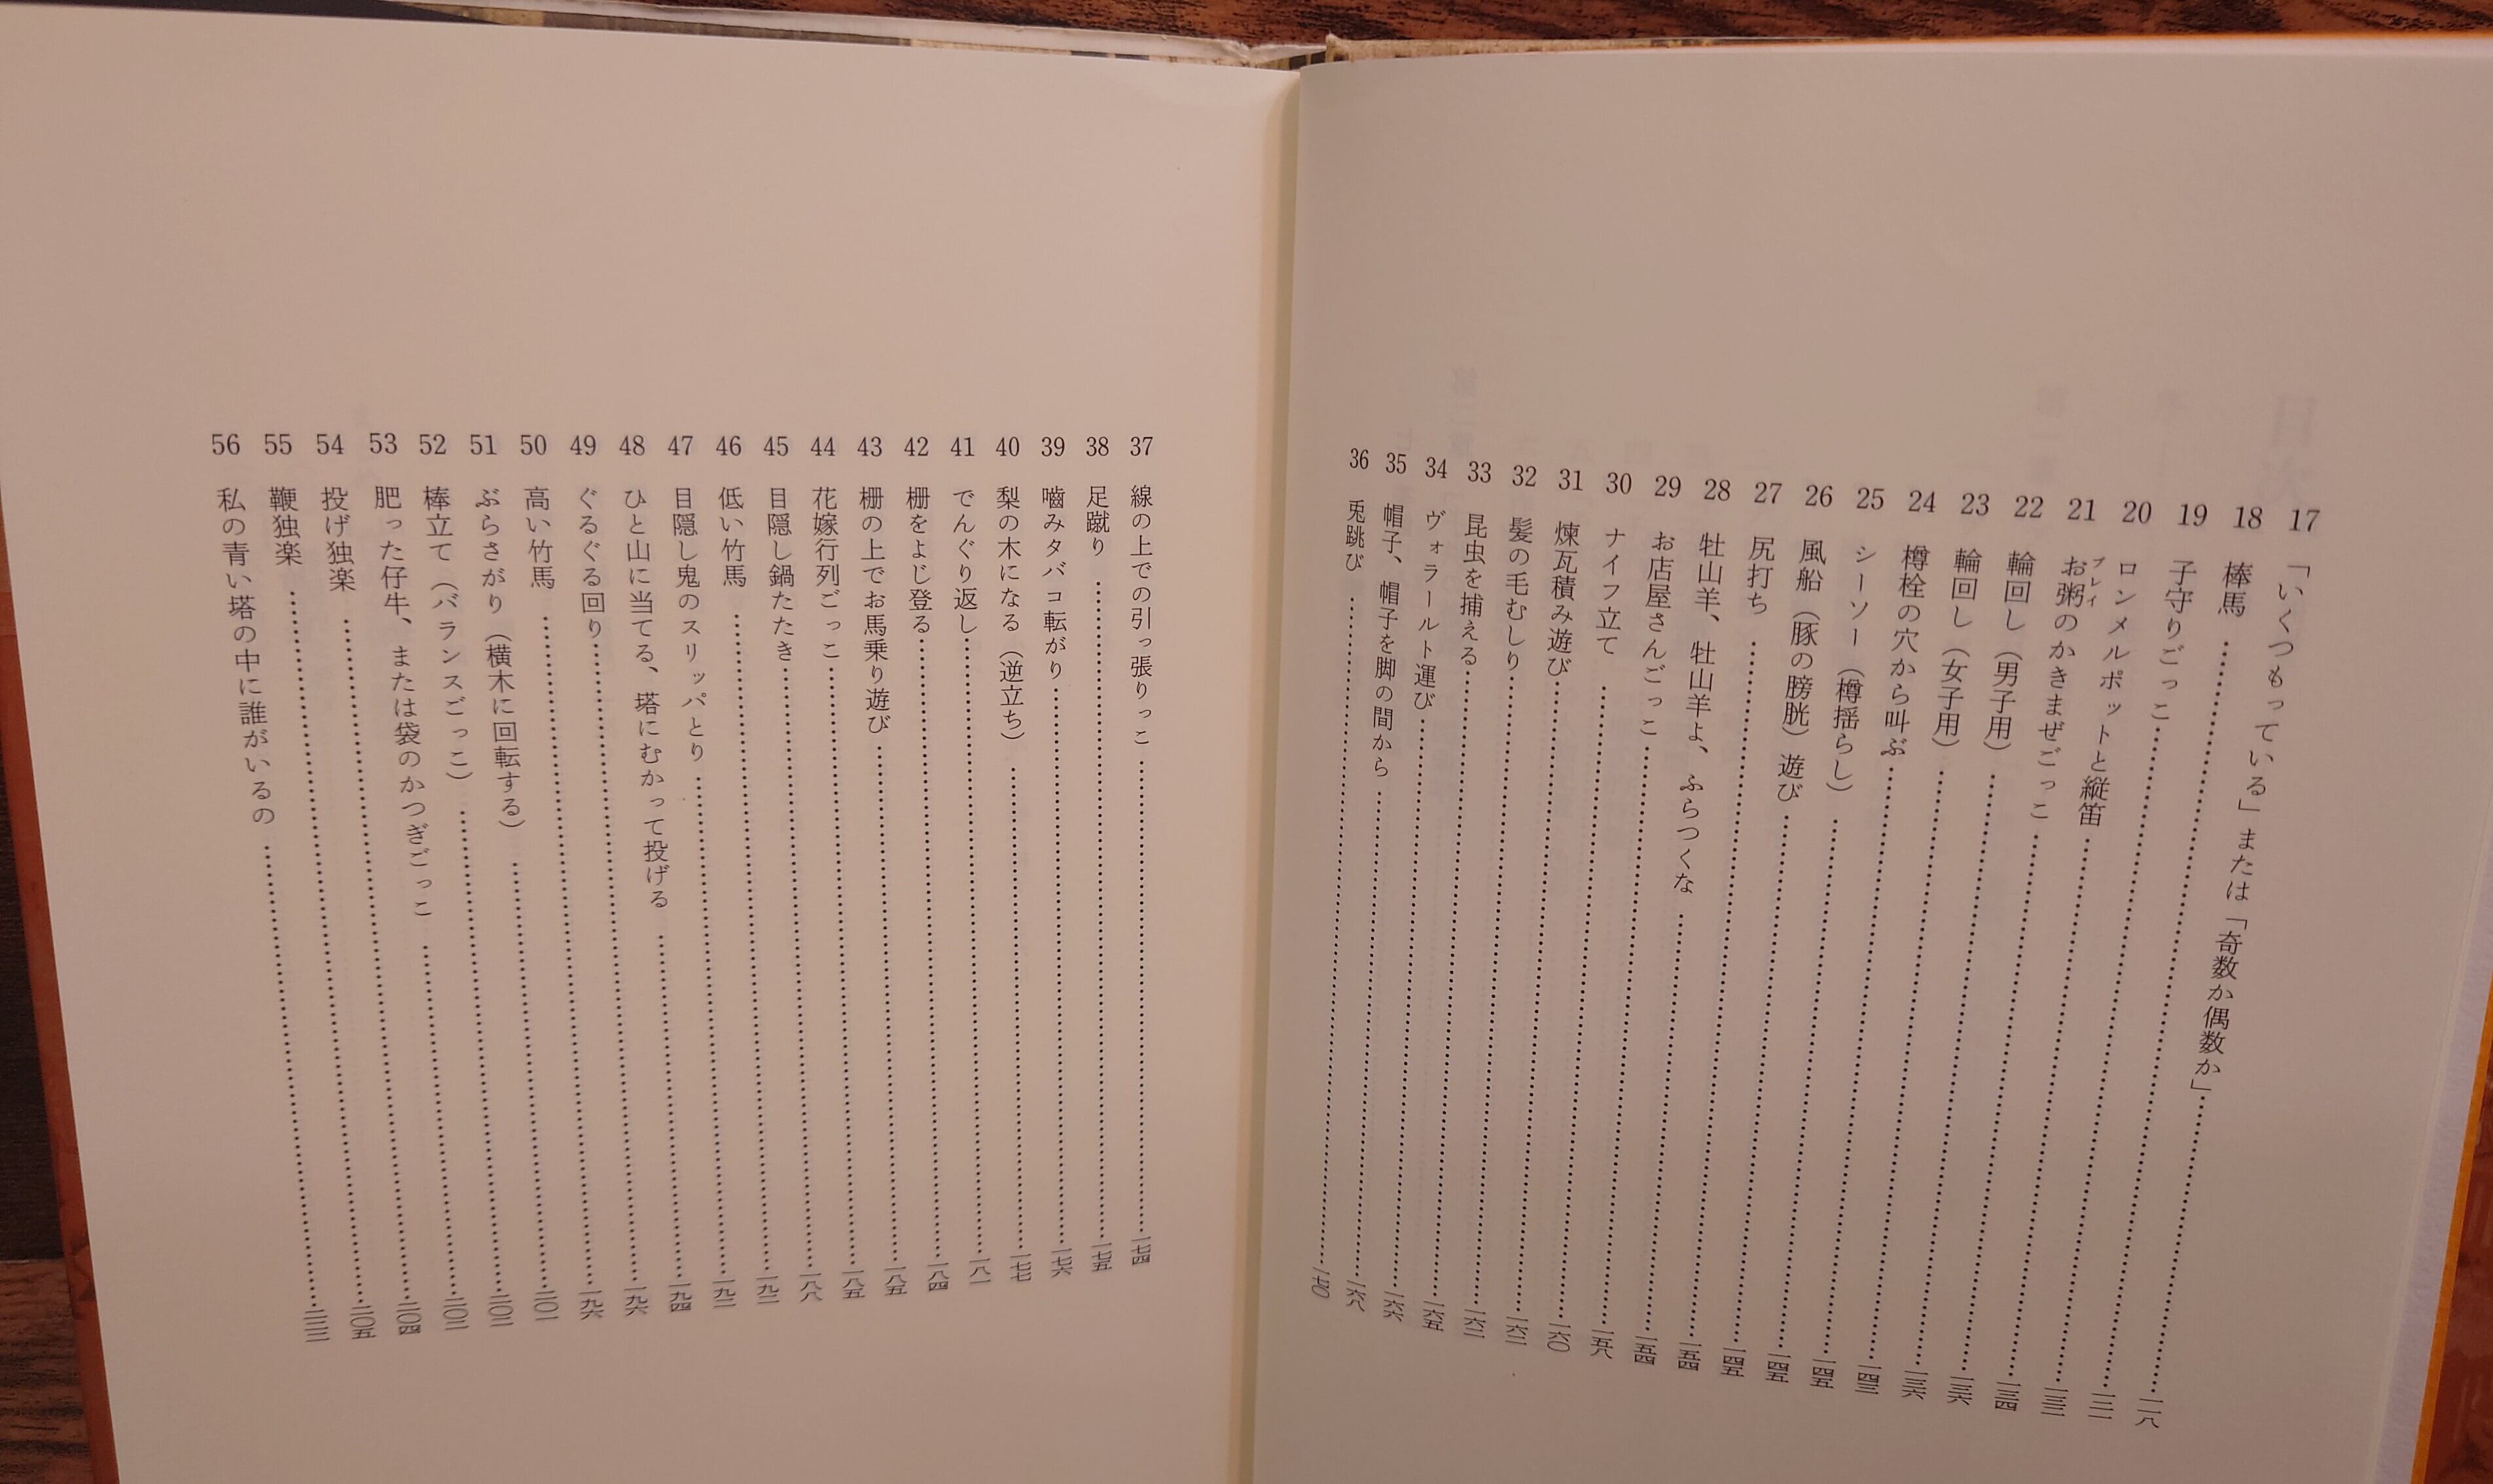 17 「いくつもっている」または「奇数か偶数か」……一一八
18 棒馬……
19 子守りごっこ……
20 ロンメルポットと縦笛……一三四
21 お粥のかきまぜごっこ……一三六
プレイ
22 輪回し（男子用）……一三六
23 輪回し（女子用）……一四三
24 樽栓の穴から叫ぶ……一四五
25 シーソー（樽揺らし）……一四五
26 風船（豚の膀胱）遊び……一四五
27 尻打ち……一五四
28 牡山羊、牡山羊よ、ふらつくな……一五四
29 お店屋さんごっこ……一五八
30 ナイフ立て……一六〇
31 煉瓦積み遊び……
32 髪の毛むしり……
33 昆虫を捕える……一六五
34 ヴォラールト運び……一六六
35 帽子、帽子を脚の間から……一六八
36 兎跳び……一七〇
37 線の上での引っ張りっこ……一七四
38 足蹴り……一七五
39 嚙みタバコ転がり……一七六
40 梨の木になる（逆立ち）……一七七
41 でんぐり返し……一八一
42 柵をよじ登る……一八四
43 柵の上でお馬乗り遊び……一八五
44 花嫁行列ごっこ……一八五
45 目隠し鍋たたき……一八八
46 低い竹馬……
47 目隠し鬼のスリッパとり……
48 ひと山に当てる、塔にむかって投げる……一九四
49 ぐるぐる回り……一九六
50 高い竹馬……一九六
51 ぶらさがり（横木に回転する）……
52 棒立て（バランスごっこ）……
53 肥った仔牛、または袋のかつぎごっこ……
54 投げ独楽……二〇四
55 鞭独楽……二〇五
56 私の青い塔の中に誰がいるの……